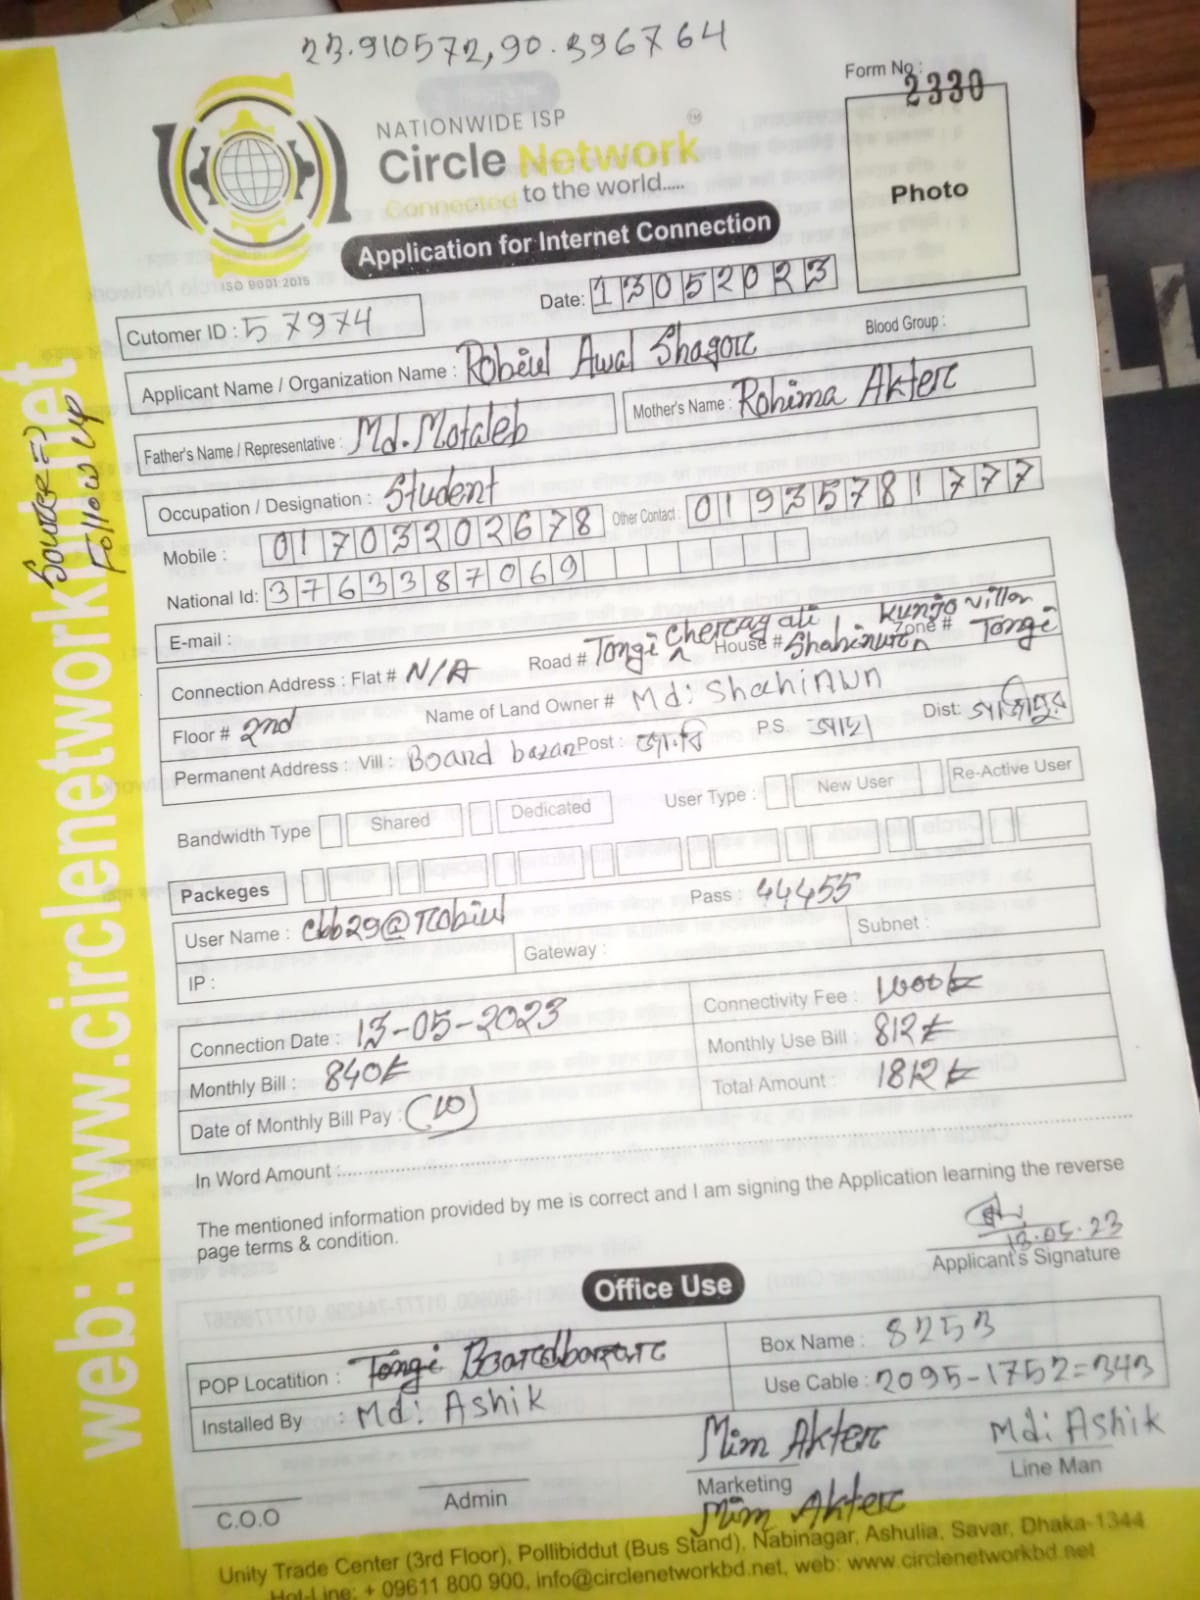 23.910572, 90.396764
Form No : 2330
NATIONWIDE ISP
Circle Network
TM
Connected to the world.....
ISO 9001:2015
Photo
Application for Internet Connection
Date: 13052023
Cutomer ID : 57974
Applicant Name / Organization Name : Robiul Awal Shagor
Blood Group :
Father's Name / Representative : Md. Motaleb
Mother's Name : Rohima Akter
Occupation / Designation : Student
Mobile : 01703202678
Other Contact : 01935781777
National Id: 3763387069
E-mail :
Connection Address : Flat # N/A Road # Tongi Cheragali House # Zone # Tongi
Floor # 2nd Name of Land Owner # Md: Shahinwn
Permanent Address : Vill : Board bazar Post : P.S. Dist: গাজীপুর
Bandwidth Type Shared Dedicated User Type : New User Re-Active User
Packeges
User Name : cbb29@robiul Pass : 44455
IP : Gateway : Subnet :
Connection Date : 13-05-2023 Connectivity Fee : 1000
Monthly Bill : 840 Monthly Use Bill : 812
Date of Monthly Bill Pay : (10) Total Amount : 1812
In Word Amount :
The mentioned information provided by me is correct and I am signing the Application learning the reverse
page terms & condition.
13.05.23
Applicant's Signature
Office Use
POP Locatition : Tongi Boardbazar
Box Name : 8253
Installed By : Md: Ashik
Use Cable : 2095-1752=343
Mim Akter
Md: Ashik
C.O.O Admin Marketing Line Man
Mim Akter
Unity Trade Center (3rd Floor), Pollibiddut (Bus Stand), Nabinagar, Ashulia, Savar, Dhaka-1344
Hot-Line: + 09611 800 900, info@circlenetworkbd.net, web: www.circlenetworkbd.net
web: www.circlenetworkbd.net
Source =>
Follow up